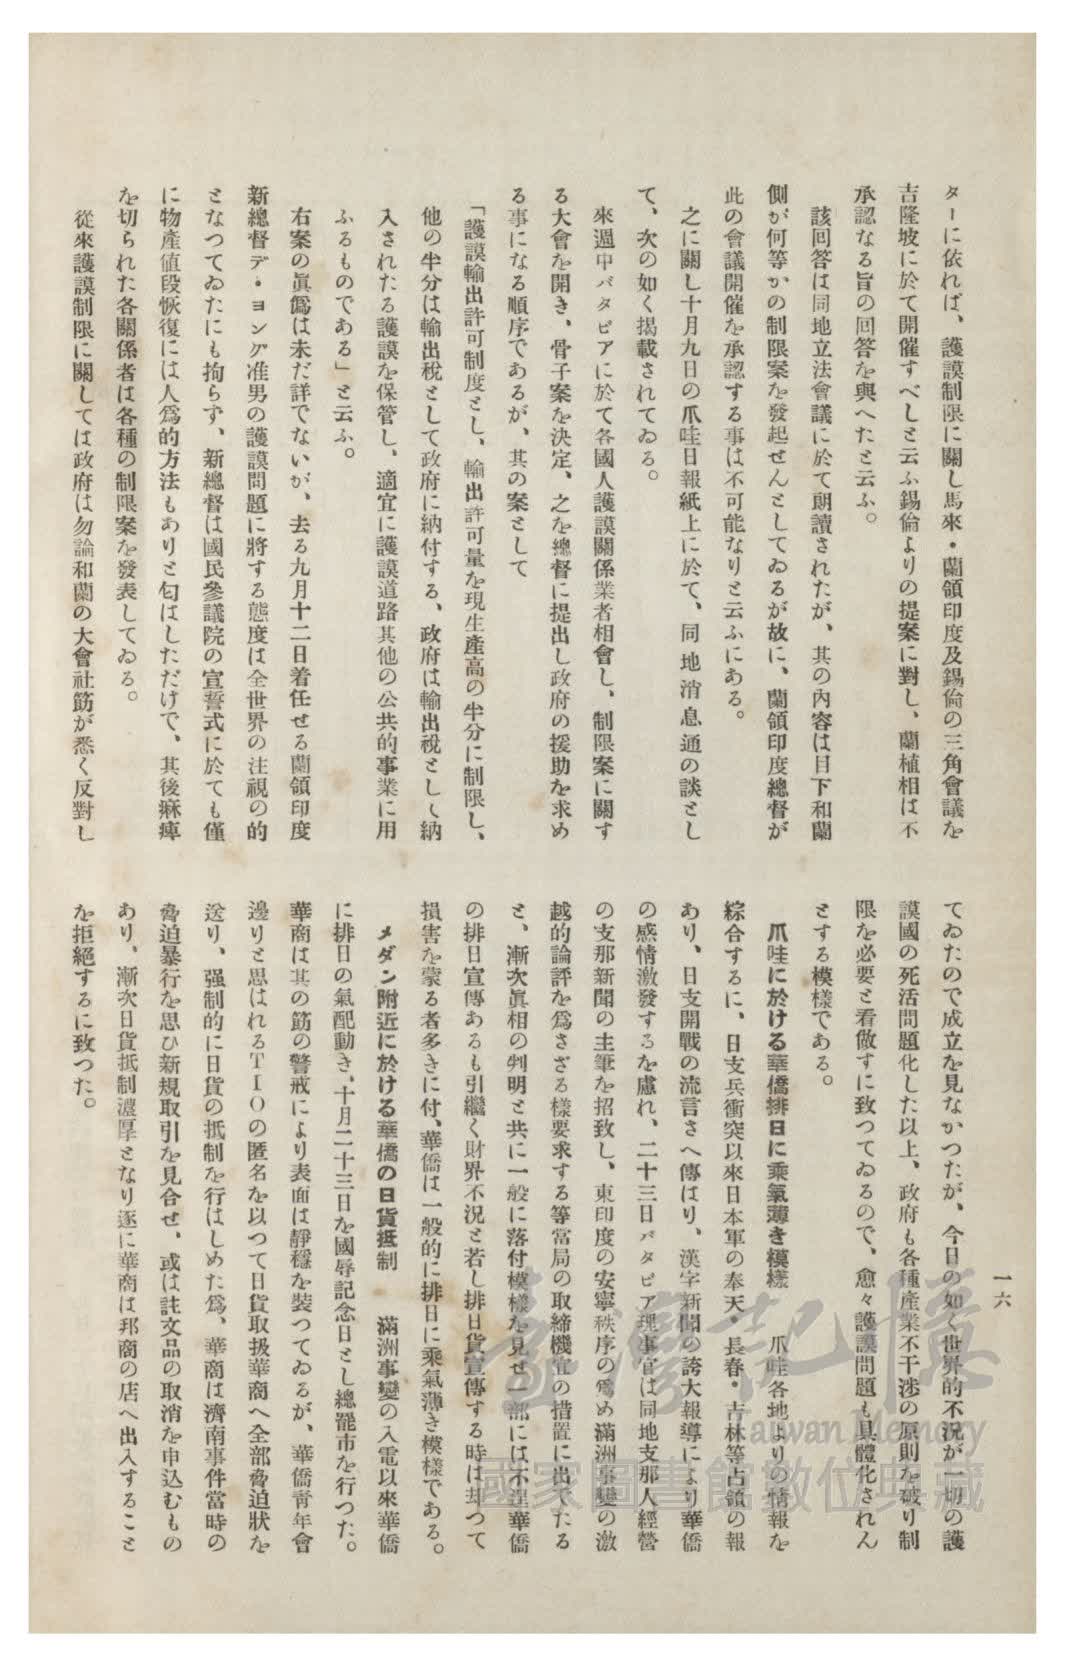 一六
ターに依れば、護謨制限に關し馬來・蘭領印度及錫倫の三角會議を
吉隆坡に於て開催すべしと云ふ錫倫よりの提案に對し、蘭植相は不
承認なる旨の回答を與へたと云ふ。
該回答は同地立法會議に於て朗讀されたが、其の內容は目下和蘭
側が何等かの制限案を發起せんとしてゐるが故に、蘭領印度總督が
此の會議開催を承認する事は不可能なりと云ふにある。
之に關し十月九日の爪哇日報紙上に於て、同地消息通の談とし
て、次の如く揭載されてゐる。
來週中バタビアに於て各國人護謨關係業者相會し、制限案に關す
る大會を開き、骨子案を決定、之を總督に提出し政府の援助を求め
る事になる順序であるが、其の案として
「護謨輸出許可制度とし、輸出許可量を現生產高の半分に制限し、
他の半分は輸出稅として政府に納付する、政府は輸出稅としく納
入されたる護謨を保管し、適宜に護謨道路其他の公共的事業に用
ふるものである」と云ふ。
右案の眞僞は未だ詳でないが、去る九月十二日着任せる蘭領印度
新總督デ・ヨング准男の護謨問題に將する態度は全世界の注視の的
となつてゐたにも拘らず、新總督は國民參議院の宣誓式に於ても僅
に物產値段恢復には人爲的方法もありと匂はしただけで、其後痳痺
を切られた各關係者は各種の制限案を發表してゐる。
從來護謨制限に關しては政府は勿論和蘭の大會社筋が悉く反對し
てゐたので成立を見なかつたが、今日の如く世界的不況が一切の護
謨國の死活問題化した以上、政府も各種產業不干渉の原則を破り制
限を必要と看做すに致つてゐるので、愈々護謨問題も具體化されん
とする模樣である。
爪哇に於ける華僑排日に乘氣薄き模樣　爪哇各地よりの情報を
綜合するに、日支兵衝突以來日本軍の奉天・長春・吉林等占領の報
あり、日支開戰の流言さへ傳はり、漢字新聞の誇大報導により華僑
の感情激發するを慮れ、二十三日バタビア理事官は同地支那人經營
の支那新聞の主筆を招致し、東印度の安寧秩序の爲め滿洲事變の激
越的論評を爲さざる樣要求する等當局の取締機宜の措置に出でたる
と、漸次眞相の判明と共に一般に落付模樣を見せ一部には不逞華僑
の排日宣傳あるも引繼く財界不況と若し排日貨宣傳する時は却つて
損害を蒙る者多きに付、華僑は一般的に排日に乘氣薄き模樣である。
メダン附近に於ける華僑の日貨抵制　滿洲事變の入電以來華僑
に排日の氣配動き、十月二十三日を國辱記念日とし總罷市を行つた。
華商は其の筋の警戒により表面は靜穩を裝つてゐるが、華僑靑年會
邊りと思はれるTIOの匿名を以つて日貨取扱華商へ全部脅迫狀を
送り、强制的に日貨の抵制を行はしめた爲、華商は濟南事件當時の
脅迫暴行を思ひ新規取引を見合せ、或は註文品の取消を申込むもの
あり、漸次日貨抵制濃厚となり逐に華商は邦商の店へ出入すること
を拒絕するに致つた。
臺灣記憶
Taiwan Memory
國家圖書館數位典藏